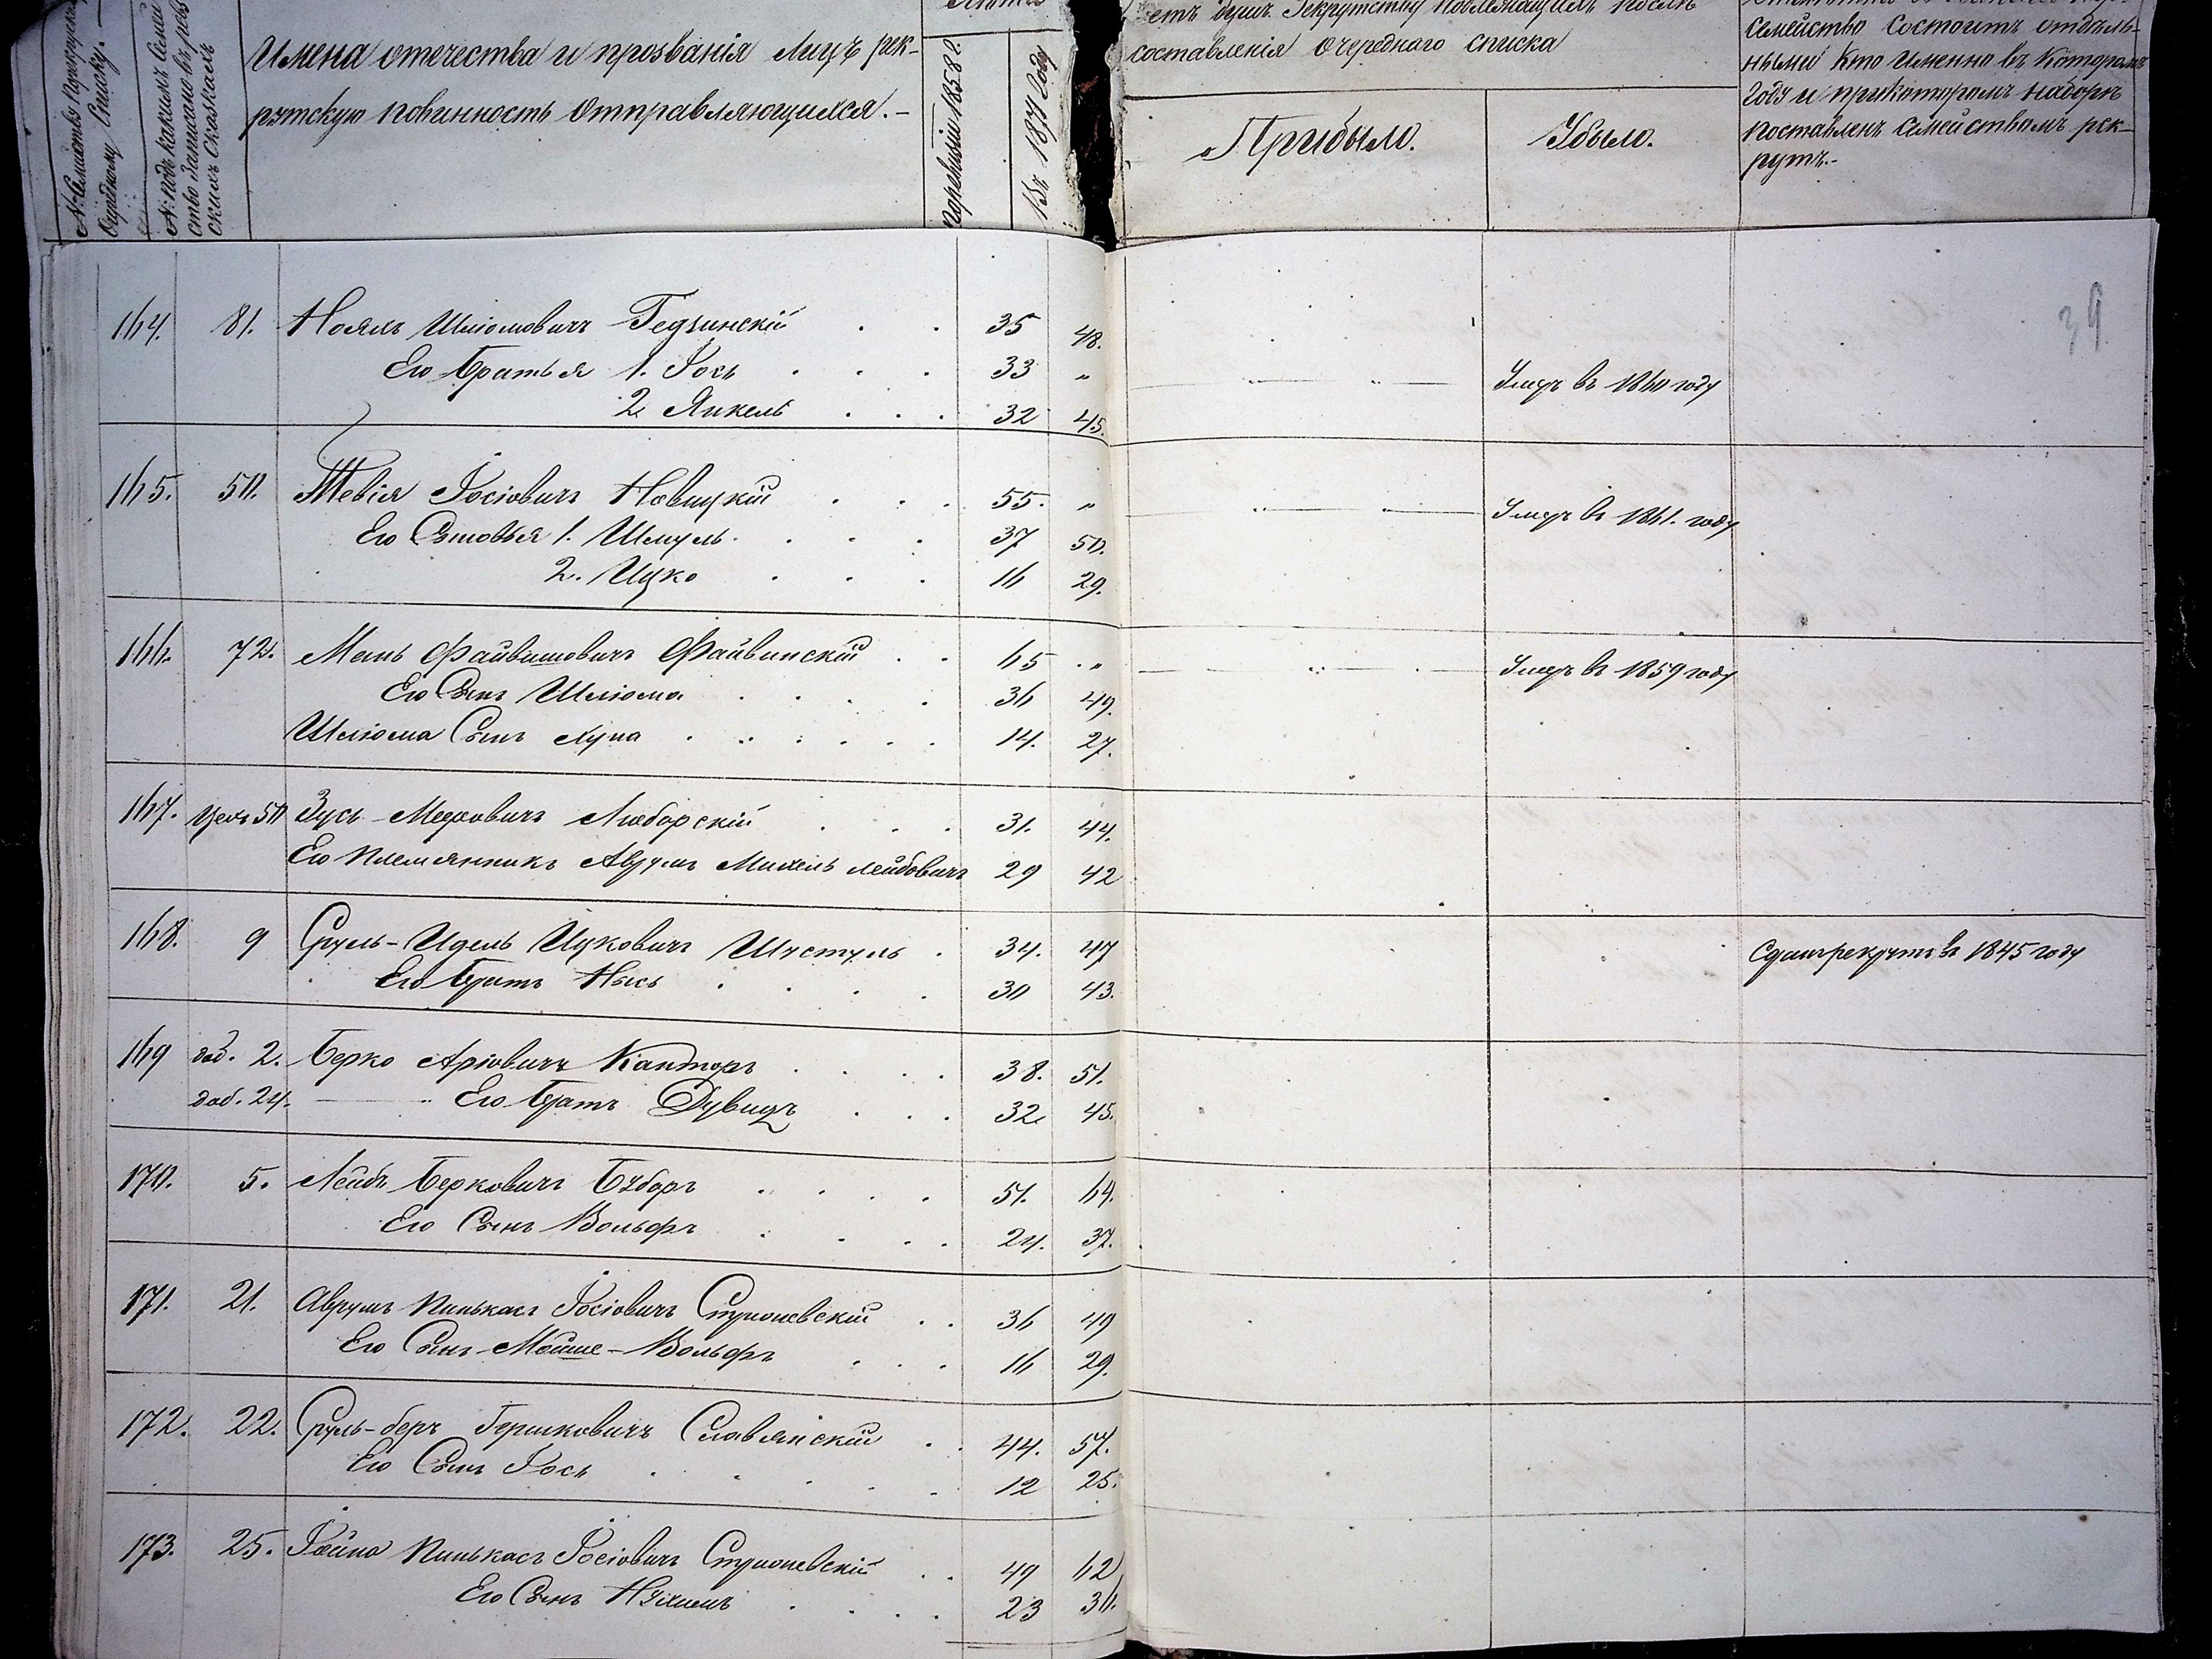 № Семейства
Очередному Списку.
№ подъ какимъ Семей
ство записано въ рев
скихъ Сказкахъ
Имена отечества и прозванія лицъ рек-
рутскую повинность отправляющихся.-
По ревизіи 1858 г.
Въ 1871 Году
составленія очереднаго списка
Прибыло.
Убыло.
Семейство состоитъ отдѣль-
нымъ кто именно въ которомъ
году и при которомъ наборѣ
поставленъ семействомъ рек-
рутъ.-
39
164. 81. Шліомовичъ Гедзинскій 35 48.
Его братья 1. Іось 33 " Умеръ въ 1860 году
2. Янкель 32 45.
165. 50. Тевія Іосіовичъ Новицкій 55. " Умеръ въ 1861. году
Его Сыновья 1. Шмуль 37 50.
2. Ицко 16 29.
166. 72. Мань Файвишовичъ Файвинскій 65 " Умеръ въ 1859 году
Его Сынъ Шліома 36 49.
Шліома Сынъ 14. 27.
167. 50 Зусь Меровичъ Люборскій 31. 44.
Его племянникъ Аврумъ Михель Лейбовичъ 29 42
168. 9 Сруль-Идель Ицковичъ Шустуль 34. 47 Сданъ рекрутъ въ 1845 году
Его братъ Нысь 30 43.
169 доб. 2. Берко Аріовичъ Канторъ 38. 51.
доб. 24. Его братъ Дувидъ 32 45.
170. 5. Лейбъ Берковичъ 51. 64.
Его Сынъ Вольфъ 24. 37.
171. 21. Аврумъ Пинькасъ Іосіовичъ 36 49
Его Сынъ Мойше-Вольфъ 16 29.
172. 22. Сруль-беръ Гершковичъ Славянскій 44. 57.
Его Сынъ Іось 12 25.
173. 25. Пинькасъ Іосіовичъ 49 62
Его Сынъ Нухимъ 23 36.